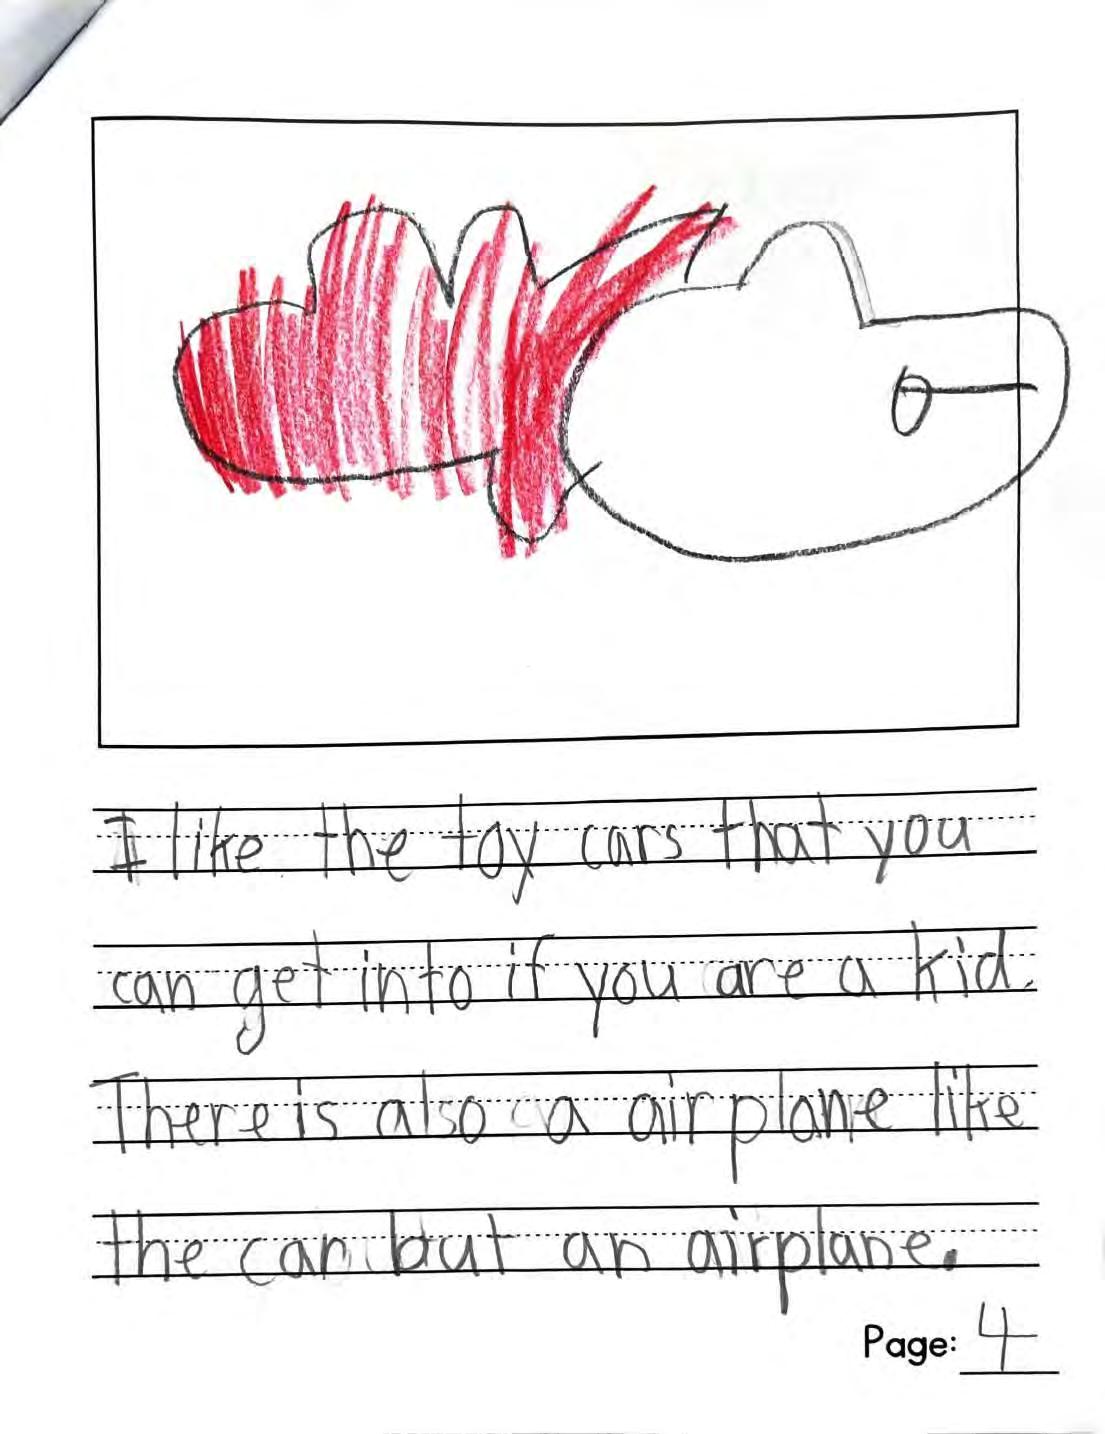 I like the toy cars that you
can get into if you are a kid.
There is also a airplane like
the car but an airplane.
Page: 4